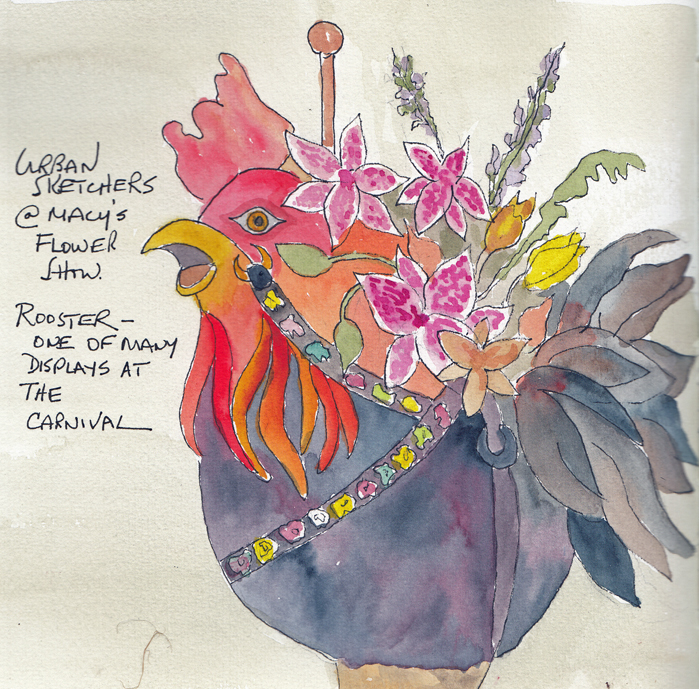 URBAN
SKETCHERS
@ MACY'S
FLOWER
SHOW.
ROOSTER -
ONE OF MANY
DISPLAYS AT
THE
CARNIVAL